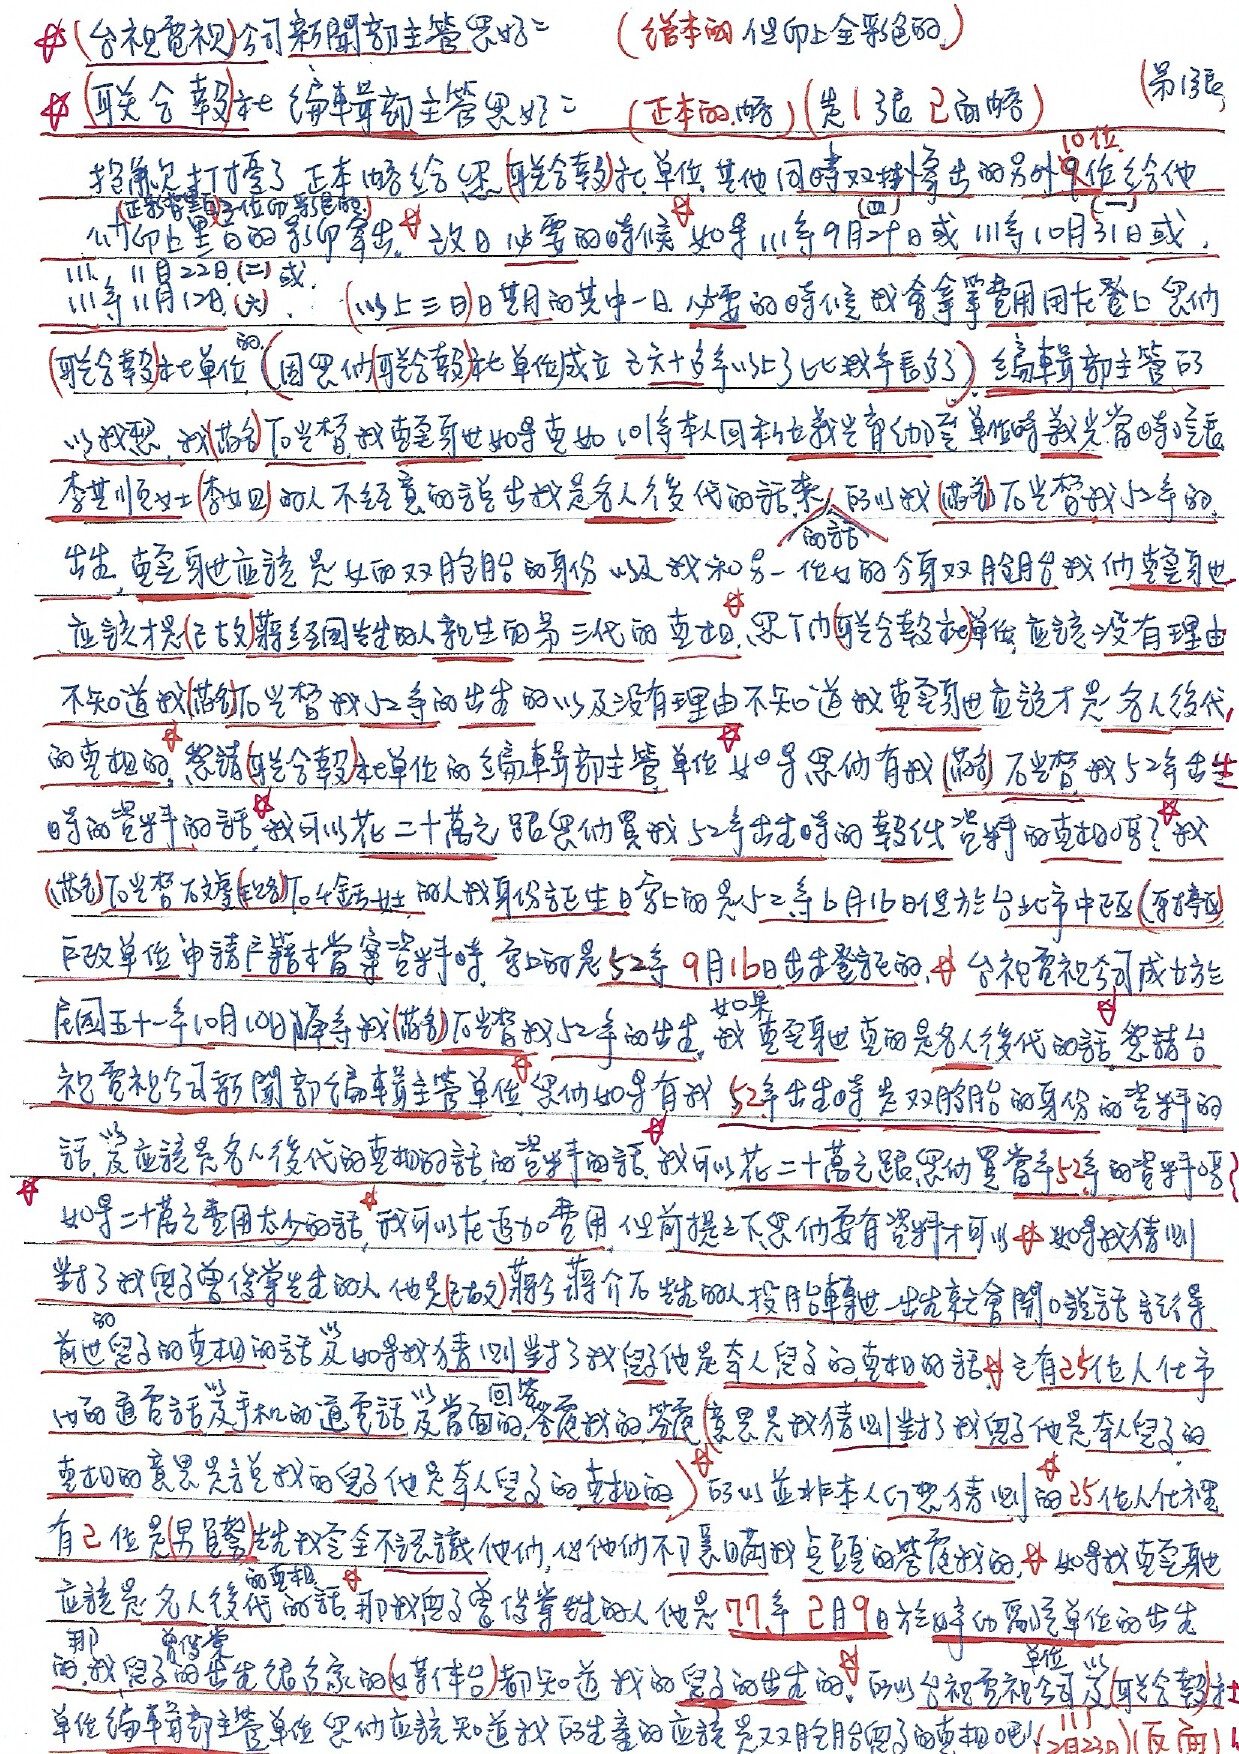 (台視電視)公司新聞部主管您好= (繕本的 但印上全彩色的)
(联合報)社 編輯部主管您好= (正本的.略)(是1張2面略) (第1張)
抱歉.打擾了 正本略給您(联合報)社單位.其他同時双掛號寄出的另外10位給他
們印上黑白的影印寄出.故日必要的時候如果111年9月29日(四)或111年10月31日(一)或.
111. 11月22日.(二)或.
111年11月12日.(六). (以上三日)日其月的其中一日.必要的時候我會拿筆費用用在登上您們
(联合報)社單位的(因您們(联合報)社單位成立已六十多年以上了比我年長的).編輯部主管的
以我想.我(舊名)石 我真正身世如果真如101年本人回 義光育幼院單位時義光當時院長
李 女士()的人不經意的說出我是名人後代的話來的話 所以我(舊名)石 我52年的
出生.真正身世應該是女的双胞胎的身份以及我和另一位女的分身双胞胎我們真正身世
應該才是(已故)蔣經國先生的人親生的第三代的真相.您們(联合報社)單位.應該沒有理由
不知道我(舊名)石 我52年的出生的以及沒有理由不知道我真正身世應該才是名人後代
的真相的.懇請(联合報)社單位的編輯部主管單位如果您們有我(舊名)石 我52年出生
時的資料的話.我可以花二十萬元跟您們買我52年出生時的報紙資料的真相嗎?我
(舊名)石 女士的人我身份証生日寫上的是52年6月16日但於台北市中正區
戶政單位申請戶籍本當案資料時.寫上的是52年9月16日出生登記的.台視電視公司成立於
民國五十一年10月10日 我(舊名)石 我52年的出生.如果我真正身世真的是名人後代的話.懇請台
視電視公司新聞部編輯主管單位您們如果有我52年出生時是双胞胎的身份的資料的
話.以及應該是名人後代的真相的話的資料的話.我可以花二十萬元跟您們買當年52年的資料嗎?
如果二十萬元費用太少的話.我可以在追加費用.但前提之下您們要有資料才可以 如果我猜測
對了我兒子曾 先生的人他是(已故)蔣公蔣介石先生的人投胎轉世一出生就會開口說話記得
前世的兒子的真相的話以及如果我猜測對了我兒子他是 人兒子的真相的話.已有25位人仕
的通電話以及手機的通電話以及當面的回答答覆我的答覆(意思是我猜測對了我兒子他是 人兒子的
真相的意思是說我的兒子他是 人兒子的真相的)所以並非本人幻想猜測的25位人仕裡
有2位是(男員警)先生我完全不認識他們.但他們不 隱瞞我点頭的答覆我的. 如果我真正身世
應該是名人後代的真相的話.那我兒子曾 先生的人他是77年2月9日於婦幼醫院單位的出生
的.那我兒子曾 的出生很多家的(媒体台)都知道我的兒子的出生的.所以台視電視公司單位以及(联合報)社
單位編輯部主管單位您們應該知道我所生產的應該是双胞胎兒子的真相吧!(111 2月23日)(反面)